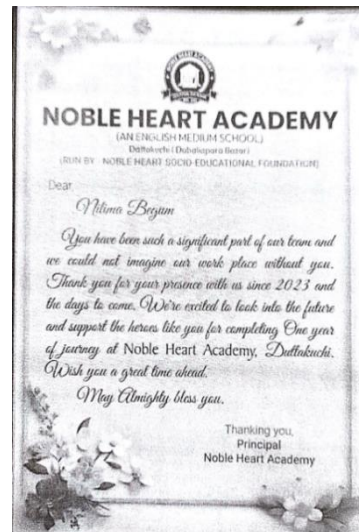 NOBLE HEART ACADEMY
NOBLE HEART ACADEMY
(AN ENGLISH MEDIUM SCHOOL)
Dattakuchi (Dubaliapara Bazar)
(RUN BY - NOBLE HEART SOCIO-EDUCATIONAL FOUNDATION)
Dear
Nilima Begum
You have been such a significant part of our team and
we could not imagine our work place without you.
Thank you for your presence with us since 2023 and
the days to come. We're excited to look into the future
and support the heroes like you for completing One year
of journey at Noble Heart Academy, Duttakuchi.
Wish you a great time ahead.
May Almighty bless you.
Thanking you,
Principal
Noble Heart Academy